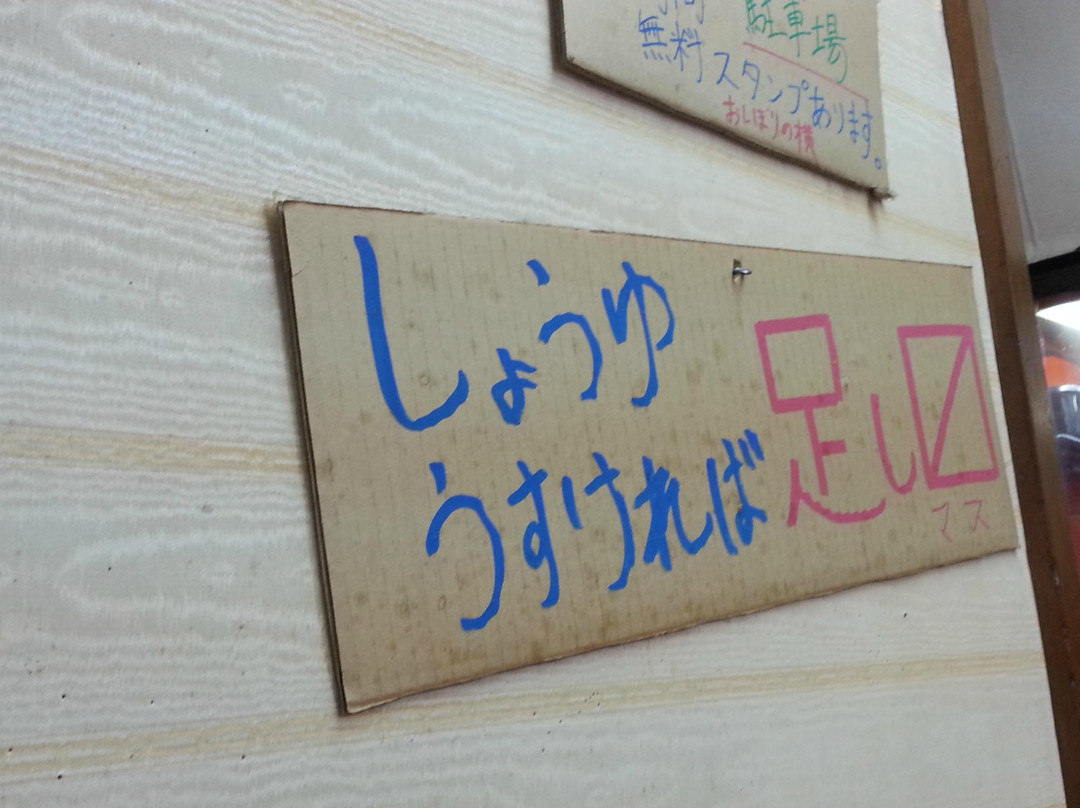 無料
駐車場
スタンプあります。
おしぼりの横
しょうゆ
うすければ
足し〼
マス